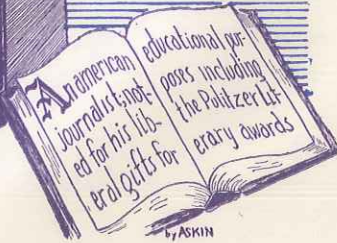 An american
journalist; not-
ed for his lib-
eral gifts for
educational pur-
poses including
the Politzer Lit-
erary awards
by ASKIN